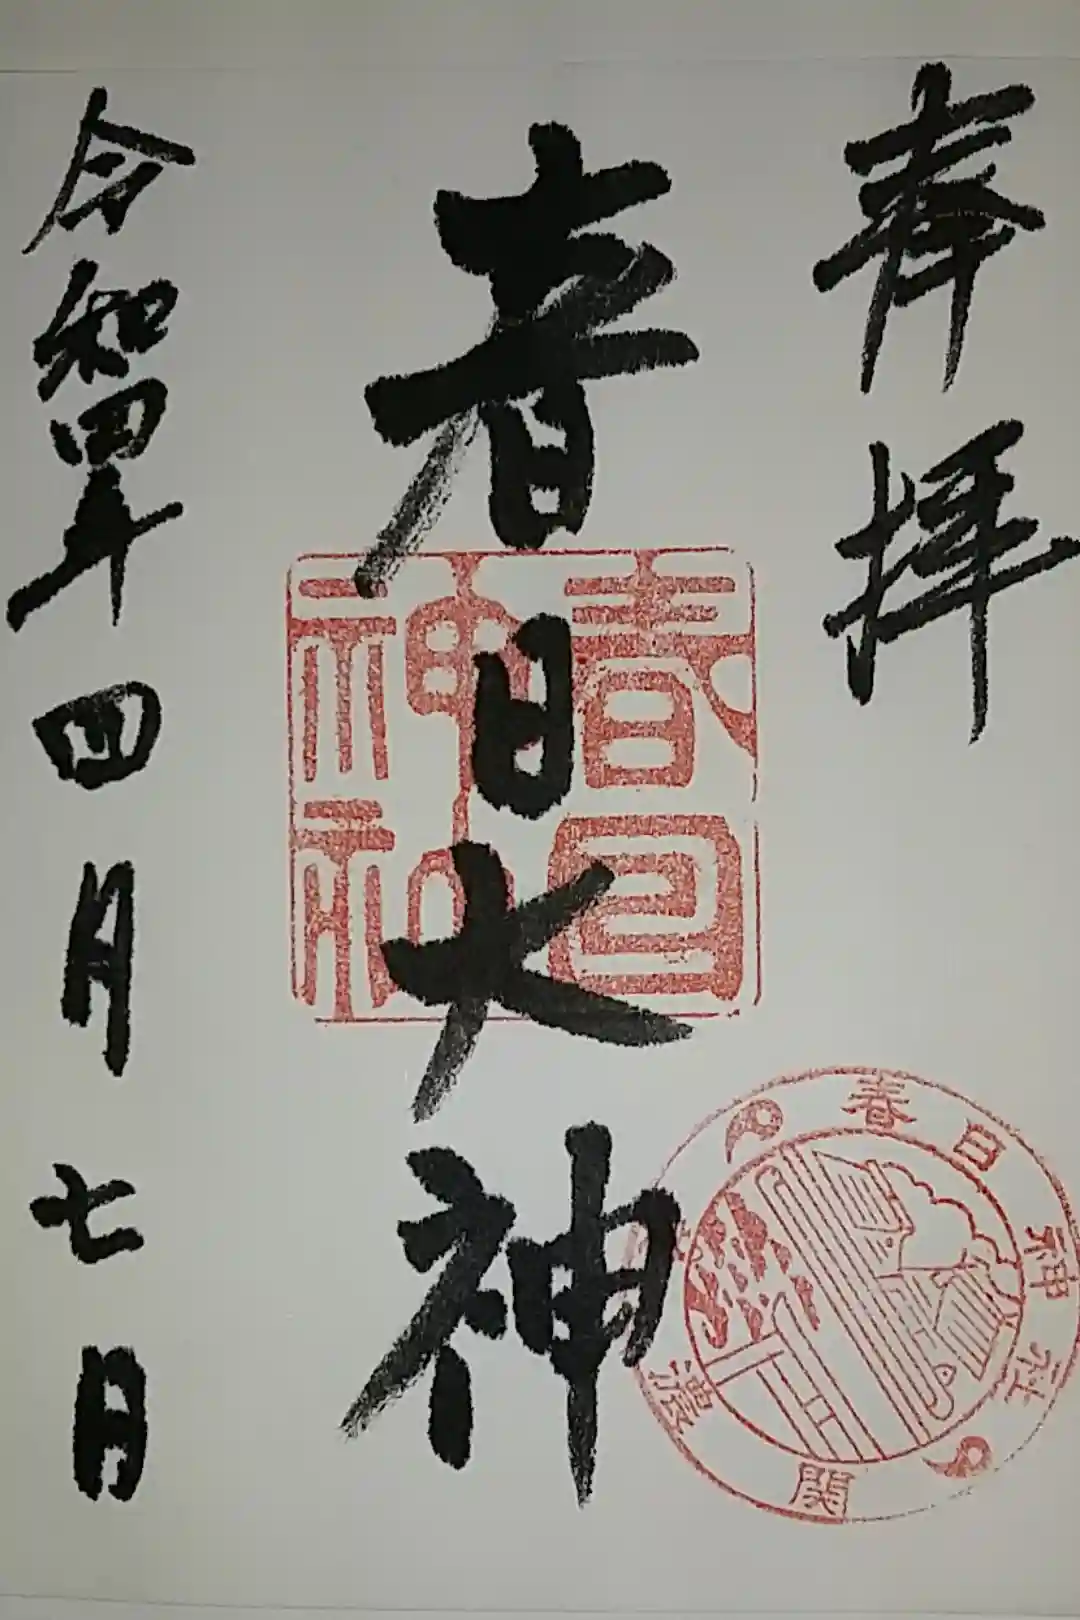 奉拝
春日大神
令和四年四月七日
春日神社
春日神社
関